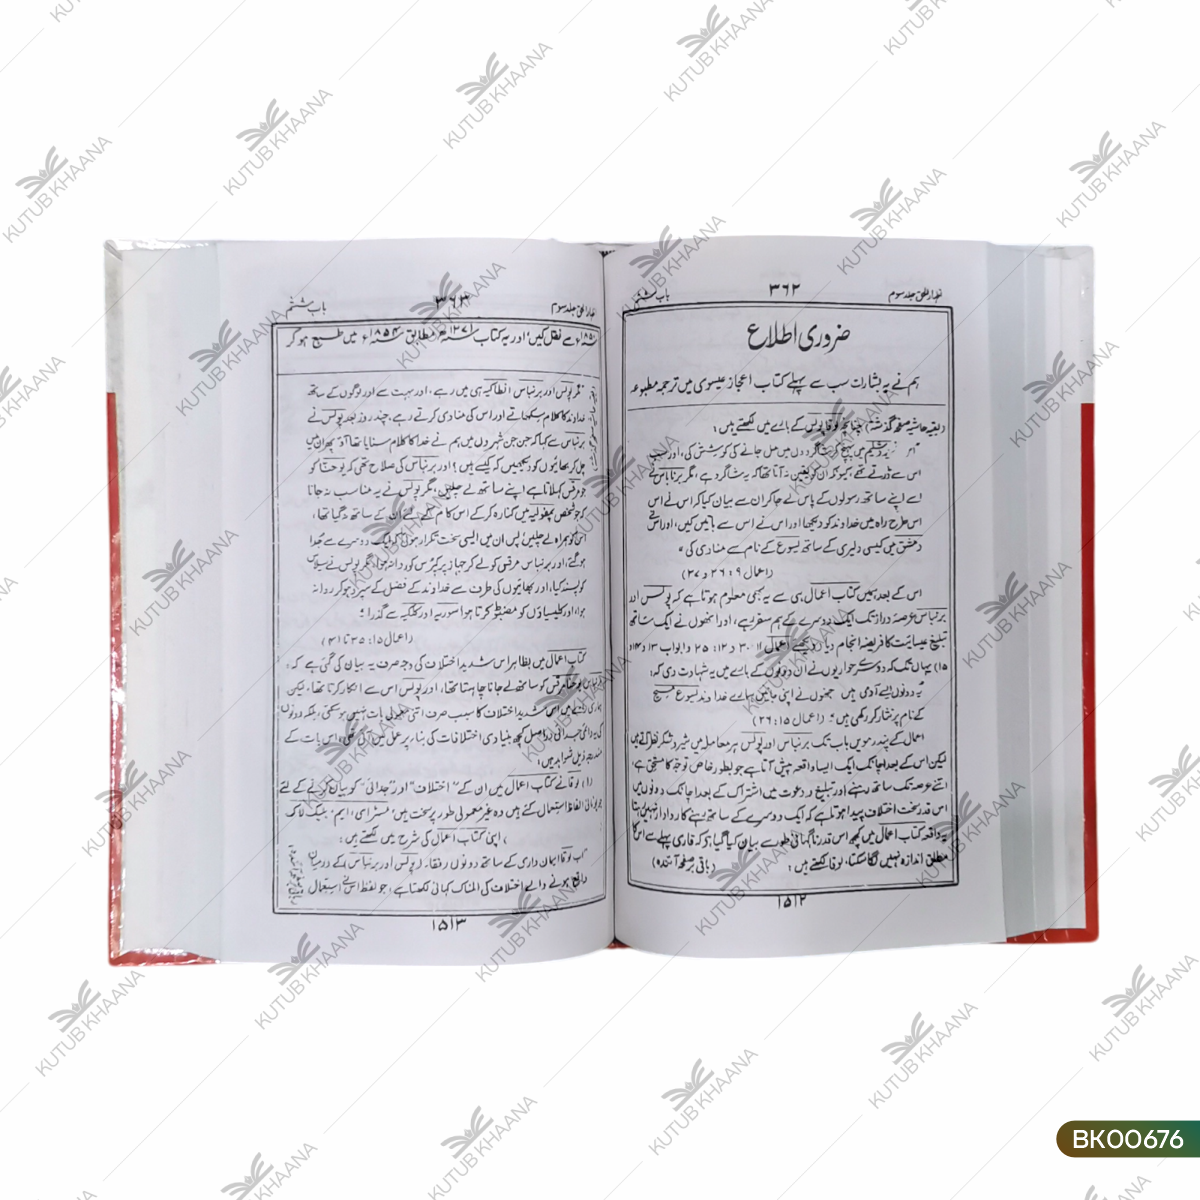 اظہار الحق جلد سوم ۳۶۲ باب ششم
ضروری اطلاع
ہم نے یہ بشارت سب سے پہلے کتاب اعجاز عیسوی میں ترجمہ مطبوعہ
(بقیہ حاشیہ صفحہ گذشتہ) چنانچہ لوقا پولس کے بارے میں لکھتے ہیں:
میں پہنچ کر شاگردوں میں مل جانے کی کوشش کی، اور سب
اس سے ڈرتے تھے، کیونکہ ان کو یقین نہ آتا تھا کہ یہ شاگرد ہے، مگر برناباس نے
اسے اپنے ساتھ رسولوں کے پاس لے جا کر ان سے بیان کیا کہ اس نے اس
اس طرح راہ میں خداوند کو دیکھا اور اس نے اس سے باتیں کیں، اور اس نے
دمشق میں کیسی دلیری کے ساتھ یسوع کے نام سے منادی کی"
(اعمال ۹: ۲۶ و ۲۷)
اس کے بعد ہمیں کتاب اعمال ہی سے یہ بھی معلوم ہوتا ہے کہ پولس اور
برنباس عرصۂ دراز تک ایک دوسرے کے ہم سفر رہے، اور انھوں نے ایک ساتھ
تبلیغ عیسائیت کا فریضہ انجام دیا (دیکھئے اعمال ۱۱: ۳۰ و ۱۲: ۲۵ و ابواب ۱۳ و ۱۴ و
۱۵) یہاں تک کہ دوسرے حواریوں نے ان دونوں کے بارے میں یہ شہادت دی کہ:
"یہ دونوں ایسے آدمی ہیں جنھوں نے اپنی جانیں ہمارے خداوند یسوع مسیح
کے نام پر نثار کر رکھی ہیں" (اعمال ۱۵: ۲۶)
اعمال کے پندرھویں باب تک برنباس اور پولس ہر معاملہ میں شیر و شکر نظر آتے ہیں
لیکن اس کے بعد اچانک ایک ایسا واقعہ پیش آتا ہے جو بطور خاص توجہ کا مستحق ہے،
اتنے عرصہ تک ساتھ رہنے اور تبلیغ و دعوت میں اشتراک کے بعد اچانک دونوں میں
اس قدر سخت اختلاف پیدا ہوتا ہے کہ ایک دوسرے کے ساتھ رہنے کا روادار نہیں رہتا
یہ واقعہ کتاب اعمال میں کچھ اس قدر ناگہانی طور سے بیان کیا گیا ہے کہ قاری پہلے سے اس کا
مطلق اندازہ نہیں لگا سکتا، لوقا لکھتے ہیں: (باقی بر صفحہ آئندہ)
۱۵۱۲
اظہار الحق جلد سوم ۳۶۳ باب ششم
۱۸۵۰ء سے نقل کیں، اور یہ کتاب ۱۲۷۱ھ مطابق ۱۸۵۴ء میں طبع ہو کر
مگر پولس اور برنباس انطاکیہ ہی میں رہے، اور بہت سے اور لوگوں کے ساتھ
خداوند کا کلام سکھاتے اور اس کی منادی کرتے رہے، چند روز بعد پولس نے
برنباس سے کہا کہ جن جن شہروں میں ہم نے خدا کا کلام سنایا تھا آؤ پھر ان میں
چل کر بھائیوں کو دیکھیں کہ کیسے ہیں؟ اور برنباس کی صلاح تھی کہ یوحنا کو
جو مرقس کہلاتا ہے اپنے ساتھ لے چلیں، مگر پولس نے یہ مناسب نہ جانا
کہ جو شخص پمفولیہ میں کنارہ کر کے اس کام کے لئے ان کے ساتھ نہ گیا تھا،
اس کو ہمراہ لے چلیں، پس ان میں ایسی سخت تکرار ہوئی کہ ایک دوسرے سے جدا
ہو گئے، اور برنباس مرقس کو لے کر جہاز پر کپرس کو روانہ ہوا، مگر پولس نے سیلاس
کو پسند کیا، اور بھائیوں کی طرف سے خداوند کے فضل کے سپرد ہو کر روانہ
ہوا، اور کلیسیاؤں کو مضبوط کرتا ہوا سوریہ اور کلکیہ سے گذرا"
(اعمال ۱۵: ۳۵ تا ۴۱)
کتاب اعمال میں بظاہر اس شدید اختلاف کی وجہ صرف یہ بیان کی گئی ہے کہ
برنباس یوحنا مرقس کو ساتھ لے جانا چاہتا تھا، اور پولس اس سے انکار کرتا تھا، لیکن
ہماری رائے میں اس شدید اختلاف کا سبب صرف اتنی معمولی بات نہیں ہو سکتی، بلکہ دونوں
کی یہ دائمی جدائی دراصل کچھ بنیادی اختلافات کی بناء پر عمل میں آئی تھی، اس بات کے
مندرجہ ذیل شواہد ہیں:
(۱) لوقا نے کتاب اعمال میں ان کے "اختلاف" اور "جدائی" کو بیان کرنے کے لئے
جو یونانی الفاظ استعمال کئے ہیں وہ غیر معمولی طور پر سخت ہیں، مسٹر ای، ایم، بلیک لاک
اپنی کتاب اعمال کی شرح میں لکھتے ہیں:
"اب لوقا ایمان داری کے ساتھ دونوں رفقاء (پولس اور برنباس) کے درمیان
واقع ہونے والے اختلاف کی المناک کہانی لکھتا ہے، جو لفظ اس نے استعمال
۱۵۱۳
KUTUB KHAANA
BK00676